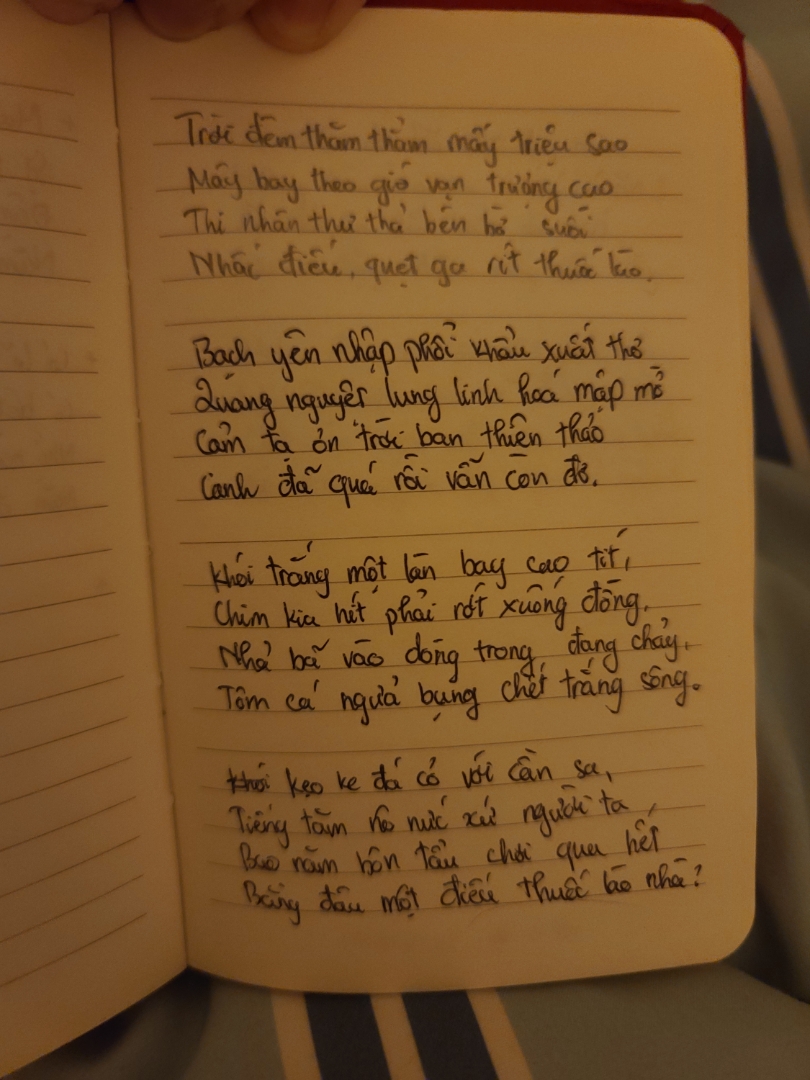 Trời đêm thăm thẳm mấy triệu sao
Mây bay theo gió vạn trượng cao
Thi nhân thư thả bên bờ suối
Nhấc điếu, quẹt ga rít thuốc lào.
Bạch yên nhập phổi khẩu xuất thơ
Quang nguyệt lung linh hoá mập mờ
Cảm tạ ơn trời ban thiên thảo
Canh đã quá rồi vẫn còn đơ.
Khói trắng một làn bay cao tít,
Chim kia hít phải rớt xuống đồng.
Nhả bã vào dòng trong đang chảy.
Tôm cá ngửa bụng chết trắng sông.
Khói kẹo ke đá cỏ với cần sa,
Tiếng tăm nô nức xứ người ta,
Bao năm bôn tẩu chơi qua hết
Bằng đâu một điếu thuốc lào nhà?